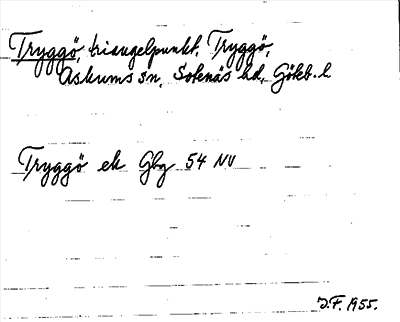 Tryggö, triangelpunkt, Tryggö,
Askums sn, Sotenäs hd, Gökb. l
Tryggö ek Gbg 54 NV
J.F. 1955.